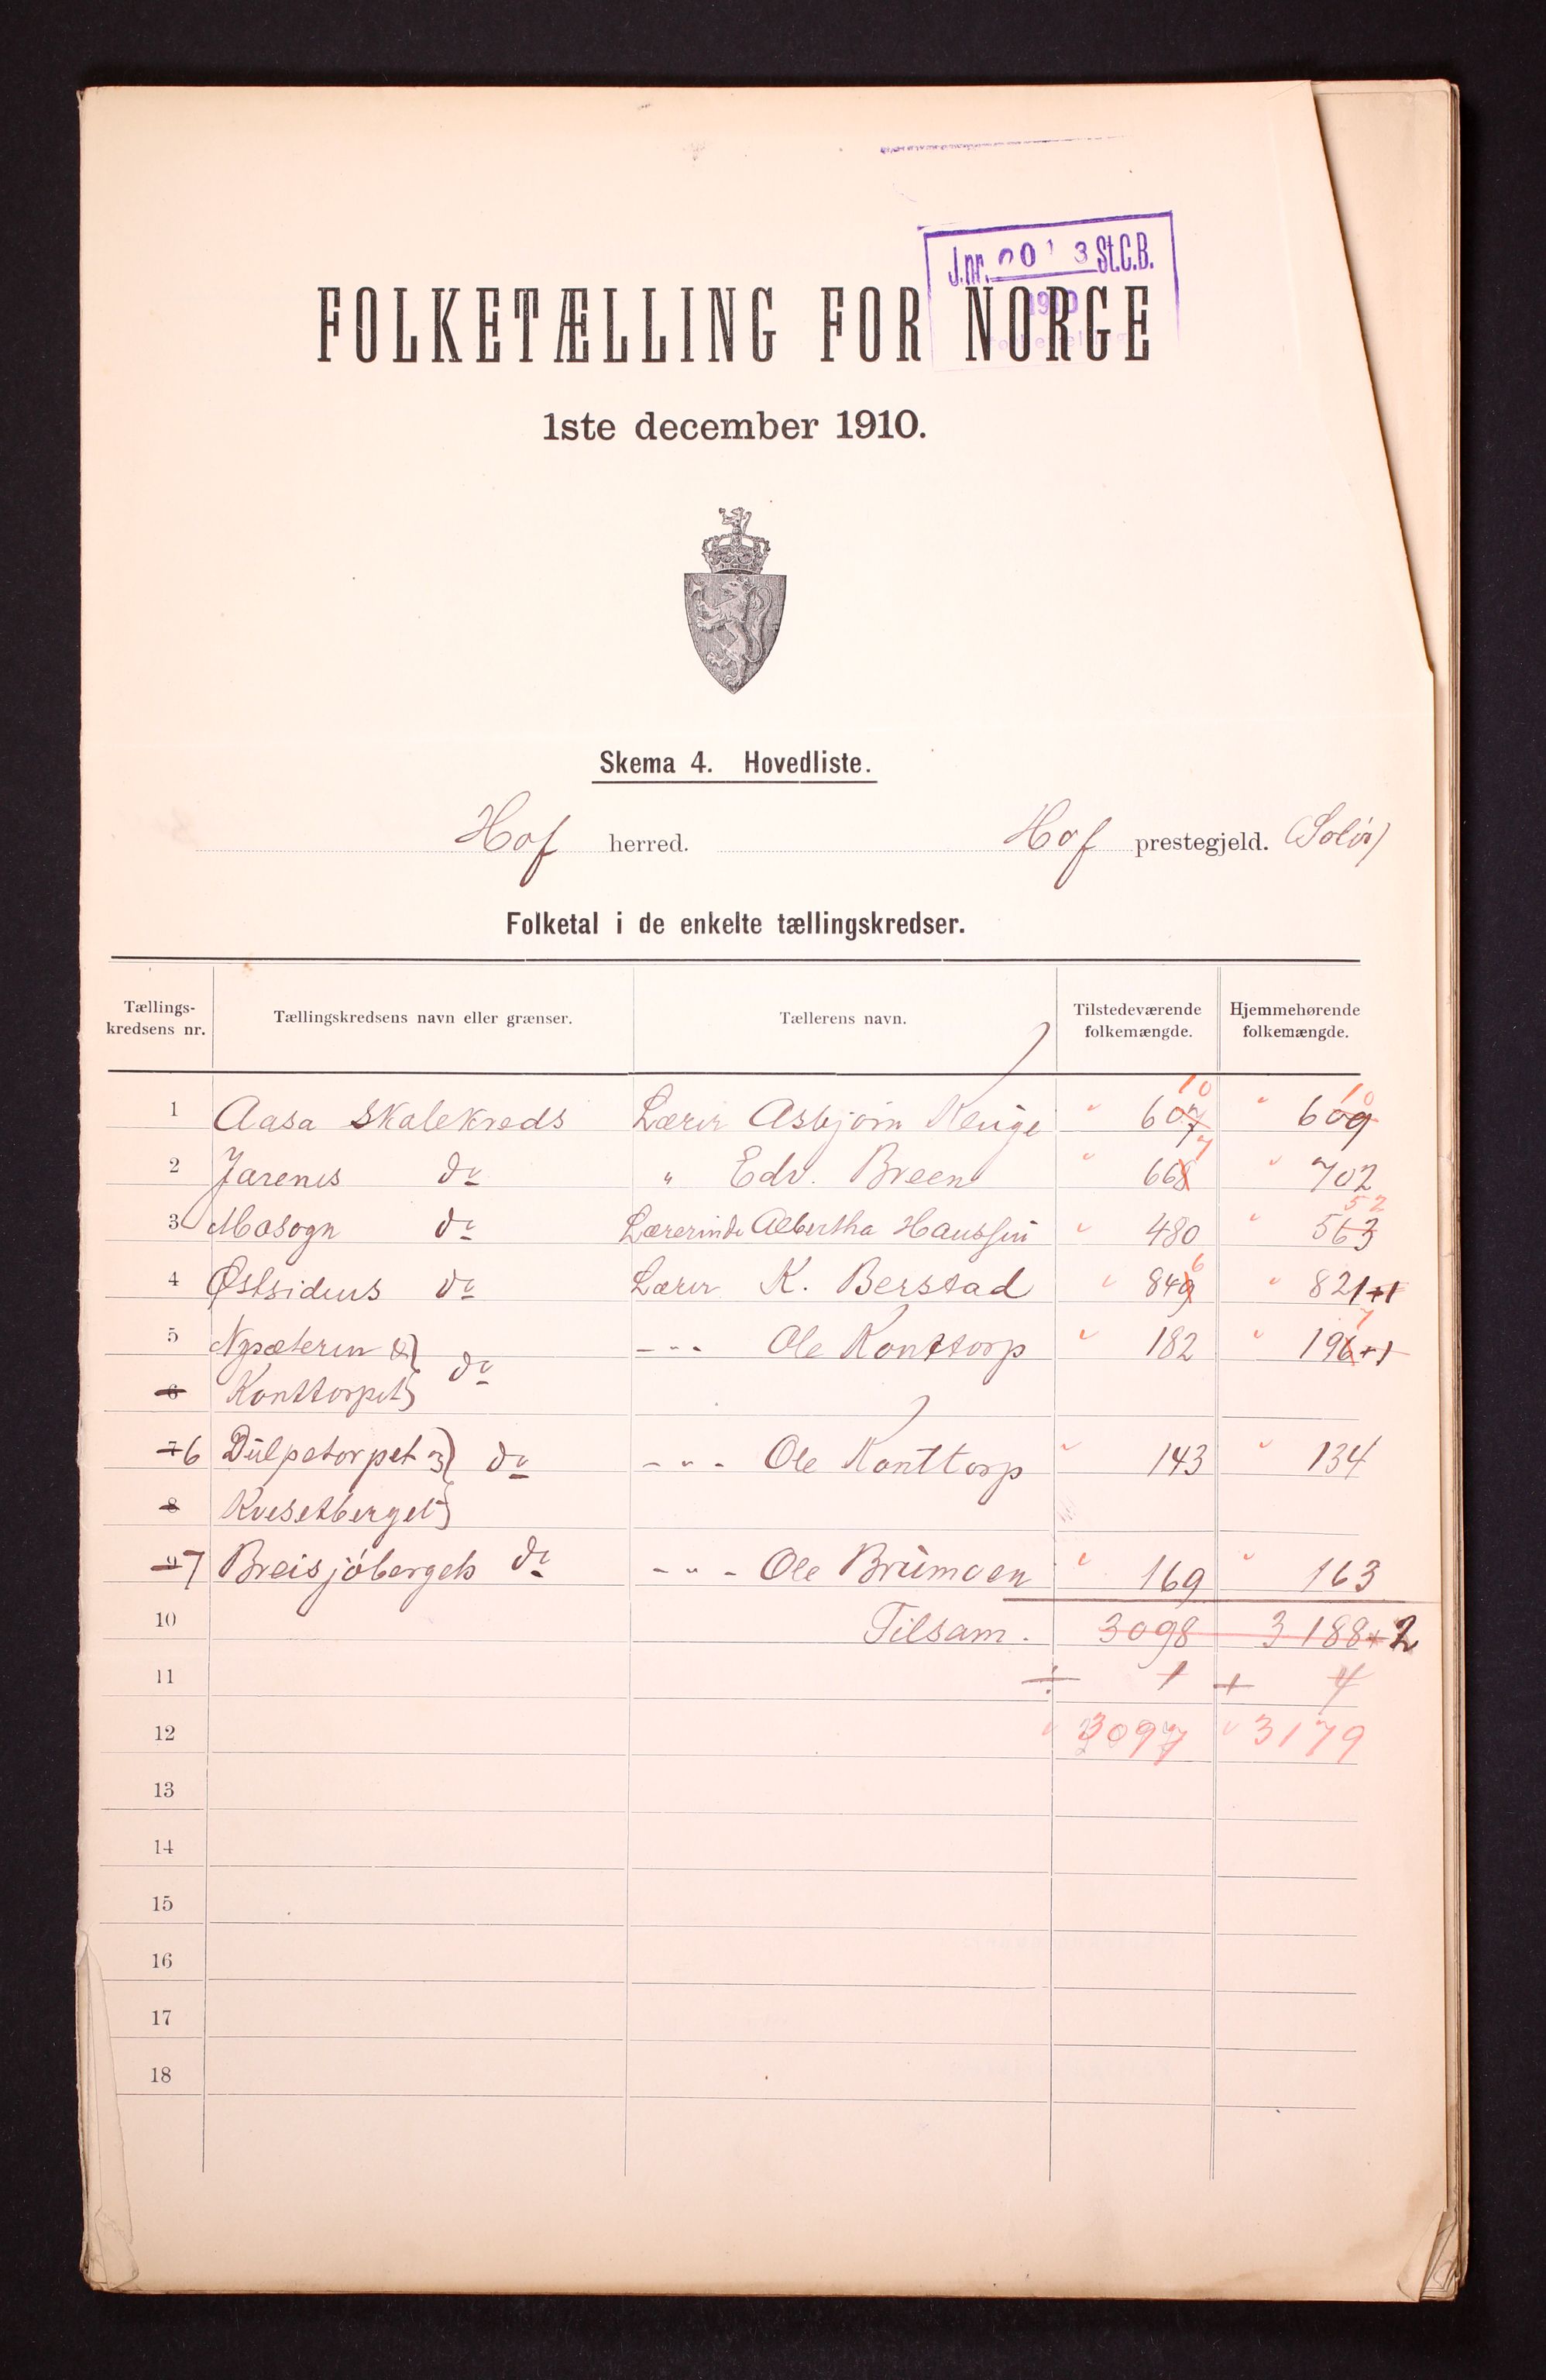 J.nr. 00 3 St.C.B.
1910
FOLKETÆLLING FOR NORGE
1ste december 1910.
Skema 4. Hovedliste.
Hof herred. Hof prestegjeld. (Solør)
Folketal i de enkelte tællingskredser.
Tællings-kredsens nr. Tællingskredsens navn eller grænser. Tællerens navn. Tilstedeværende folkemængde. Hjemmehørende folkemængde.
10 10
1 Aasa Skolekreds Lærer Asbjørn 607 609
7
2 Jarenes do " Edv. Breen 668 702
52
3 Mosogn do Lærerinde Albertha Haussen 480 563
6
4 Østsidens do Lærer K. Berstad 849 821+1
7
5 Nysæteren & do - " - Ole Konttorp 182 196+1
6 Konttorpet
7 6 Dulpetorpet og do - " - Ole Konttorp 143 134
8 Kvesetberget
9 7 Breisjøbergets do - " - Ole Brumoen 169 163
10 Tilsam. 3098 3188+2
11 ÷ 1 + 4
12 3097 3179
13
14
15
16
17
18